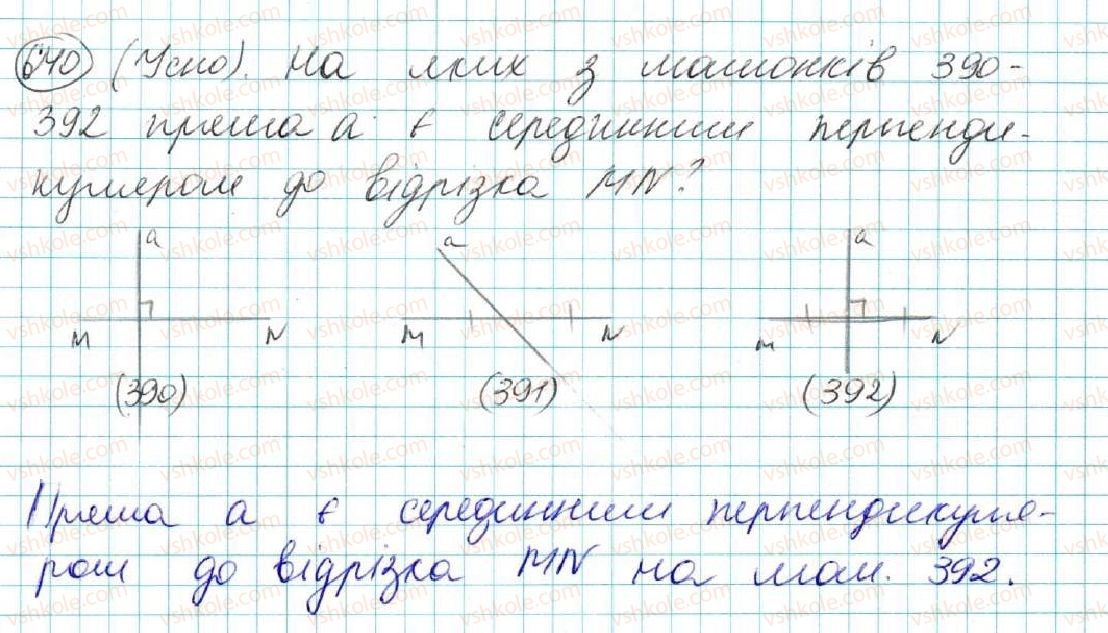 640 (Усно). На яких з малюнків 390-
392 пряма a є серединним перпенди-
куляром до відрізка MN?
a a a
M N M N M N
(390) (391) (392)
Пряма a є серединним перпендикуля-
ром до відрізка MN на мал. 392.